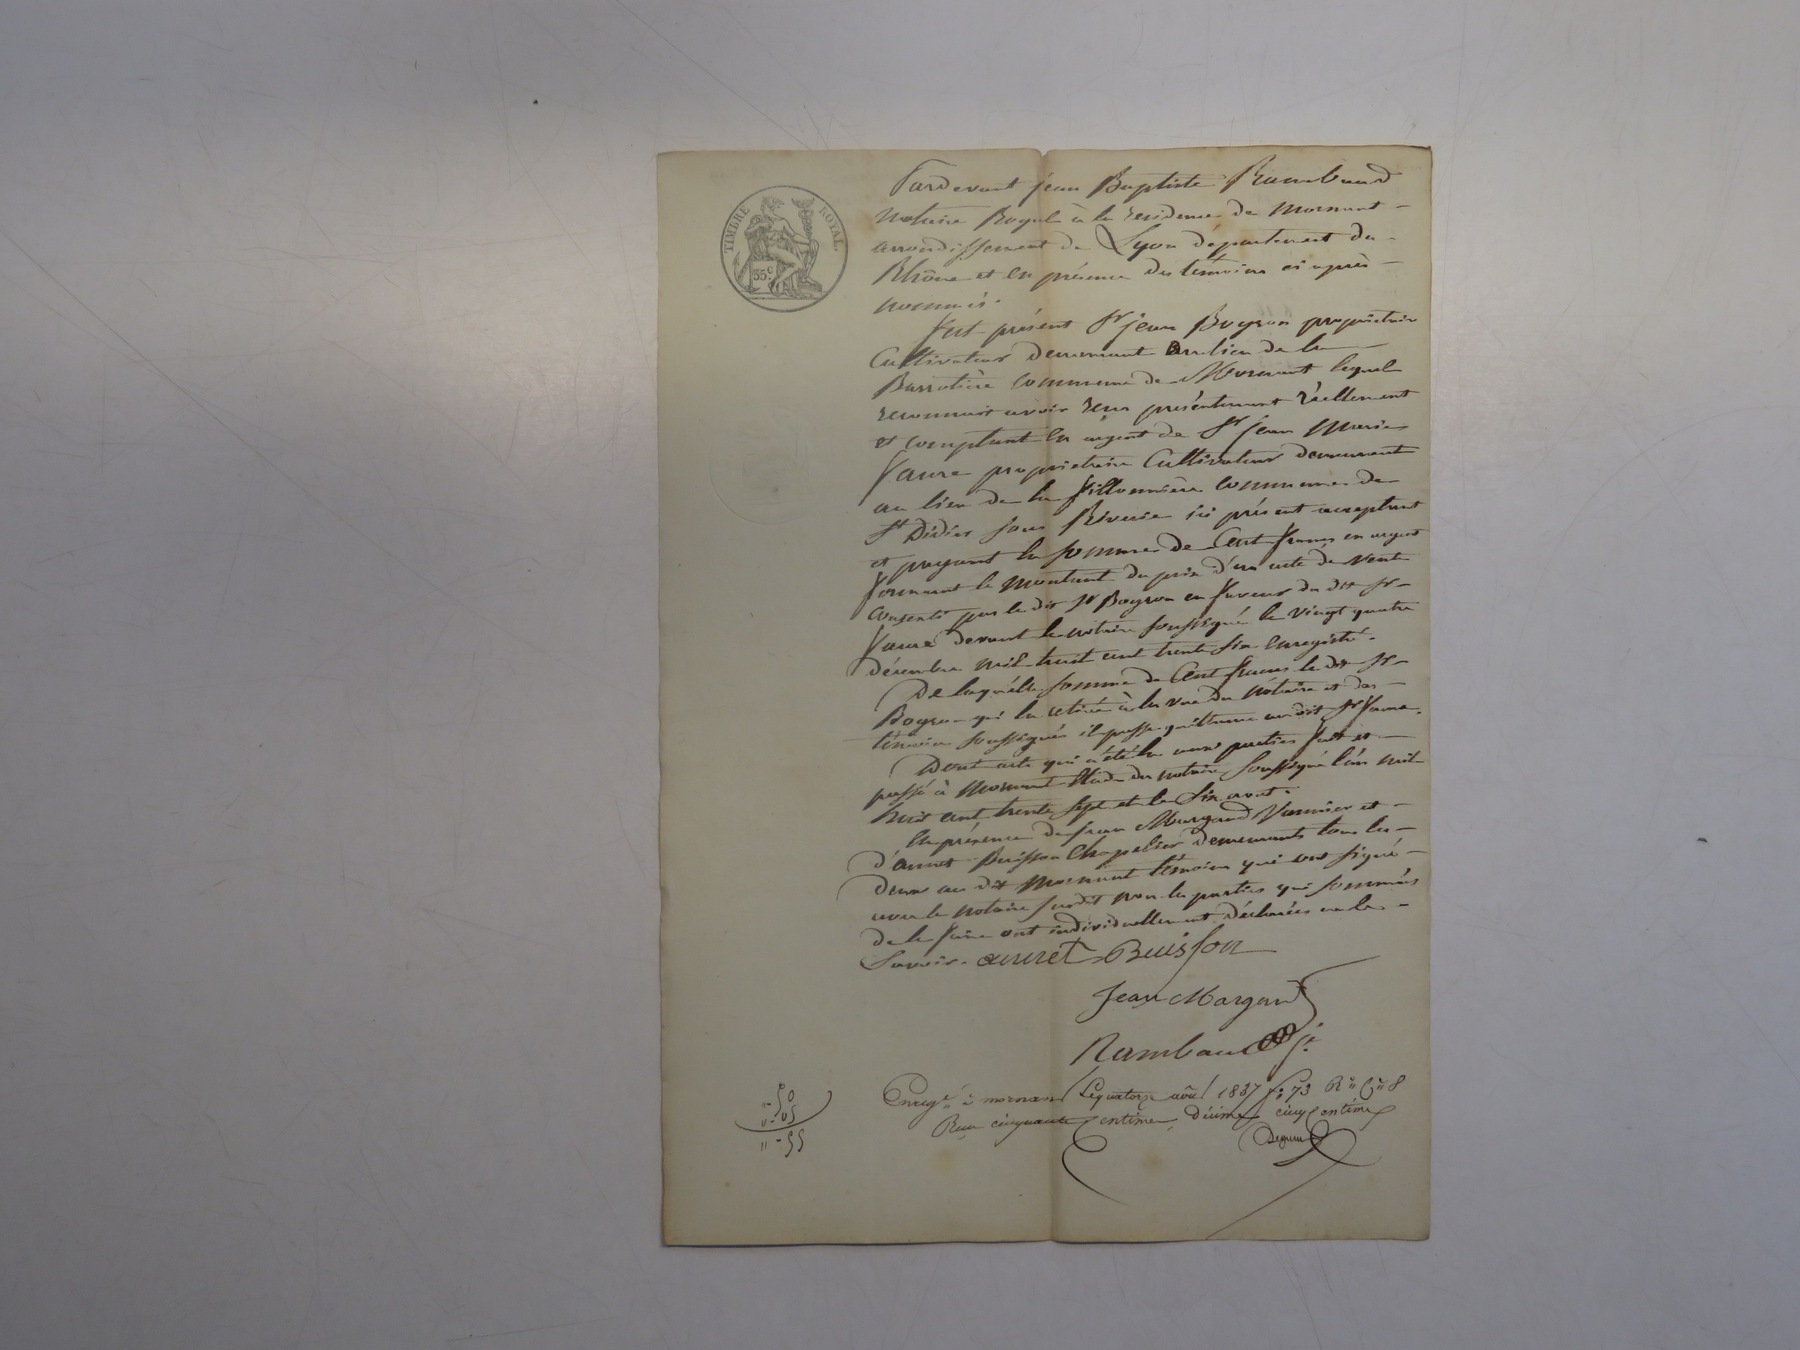 TIMBRE ROYAL.
35 c
Pardevant jean Baptiste Rambaud
Notaire Royal à la résidence de Mornant
arrondissement de Lyon département du
Rhône et en présence des témoins ci après
nommés.
fut présent Sr jean Boyron propriétaire
Cultivateur demeurant au lieu de la
Barrotière commune de Mornant lequel
reconnait avoir reçu présentement réellement
et comptant en argent de Sr jean Marie
faure propriétaire Cultivateur demeurant
au lieu de la commune de
St Didier sous Riverie ici présent acceptant
et payant la somme de Cent francs en argent
formant le montant du prix d'un acte de vente
consenti par le dit Sr Boyron en faveur du dit Sr
faure devant le notaire soussigné le vingt quatre
décembre mil huit cent trente six enregistré.
De laquelle somme de Cent francs le dit Sr
Boyron qui la retirée à la vue du Notaire et des
témoins soussignés il passe quittance au dit Sr faure.
Dont acte qui a été lu aux parties fait et
passé à Mornant Etude du notaire soussigné l'an mil
huit cent trente sept et le six aout.
En présence de jean Margand Vannier et
d'annet Buisson Chapelier demeurants tous les
deux au dit Mornant témoins qui ont signé
avec le notaire susdit non les parties qui sommées
de le faire ont individuellement déclarées ne le
savoir. annet Buisson
Jean Margand
Rambaud
Enregé à mornant Le quatorze août 1837 fo 73 Ro Ce 8
Reçu cinquante centimes, Décime cinq centimes
" - 50
" - 05
" - 55